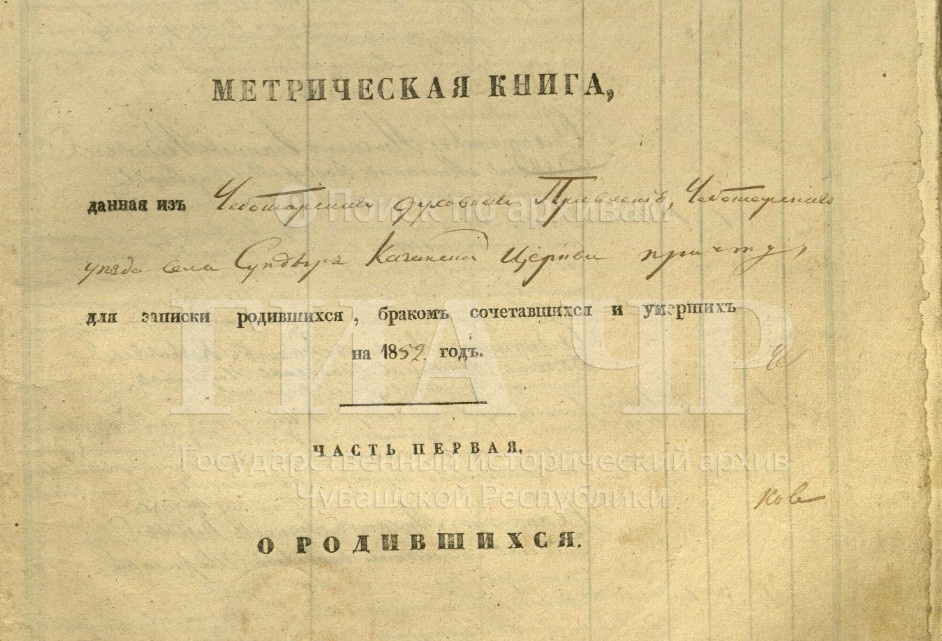 МЕТРИЧЕСКАЯ КНИГА,
данная изъ Чебоксарскаго духовнаго Правленія, Чебоксарскаго
Поиск по архивам
уѣзда села Сундырь Казанской Церкви причту,
для записки родившихся, бракомъ сочетавшихся и умершихъ
на 1852 годъ.
ГИА ЧР
ЧАСТЬ ПЕРВАЯ,
Государственный исторический архив
Чувашской Республики
ков
О РОДИВШИХСЯ.